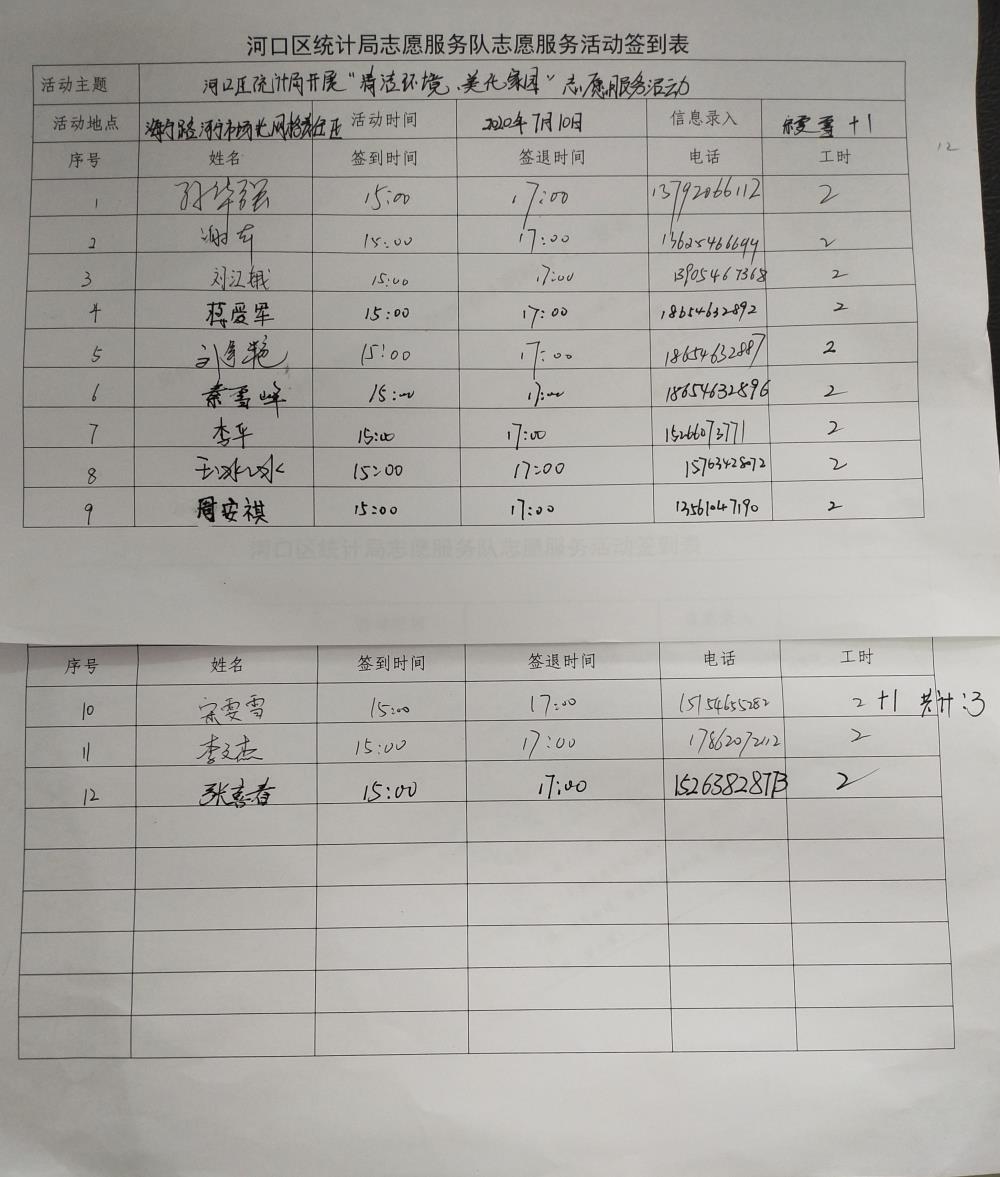 河口区统计局志愿服务队志愿服务活动签到表
活动主题 河口区统计局开展“清洁环境、美化家园”志愿服务活动
活动地点 海宁路河宁市场北网格责任区 活动时间 2020年7月10日 信息录入 宋雯雪 +1
序号 姓名 签到时间 签退时间 电话 工时
12
1 孙华强 15:00 17:00 13792066112 2
2 谢东 15:00 17:00 13625466694 2
3 刘江娥 15:00 17:00 13905467368 2
4 蒋爱军 15:00 17:00 18654632892 2
5 15:00 17:00 18654632887 2
6 秦雪峰 15:00 17:00 18654632896 2
7 李华 15:00 17:00 15266073771 2
8 王冰冰 15:00 17:00 15763428072 2
9 周安祺 15:00 17:00 13561047190 2
河口区统计局志愿服务队志愿服务活动签到表
序号 姓名 签到时间 签退时间 电话 工时
10 宋雯雪 15:00 17:00 15154655282 2 +1 共计:3
11 李文杰 15:00 17:00 17862072112 2
12 张喜春 15:00 17:00 15263828713 2